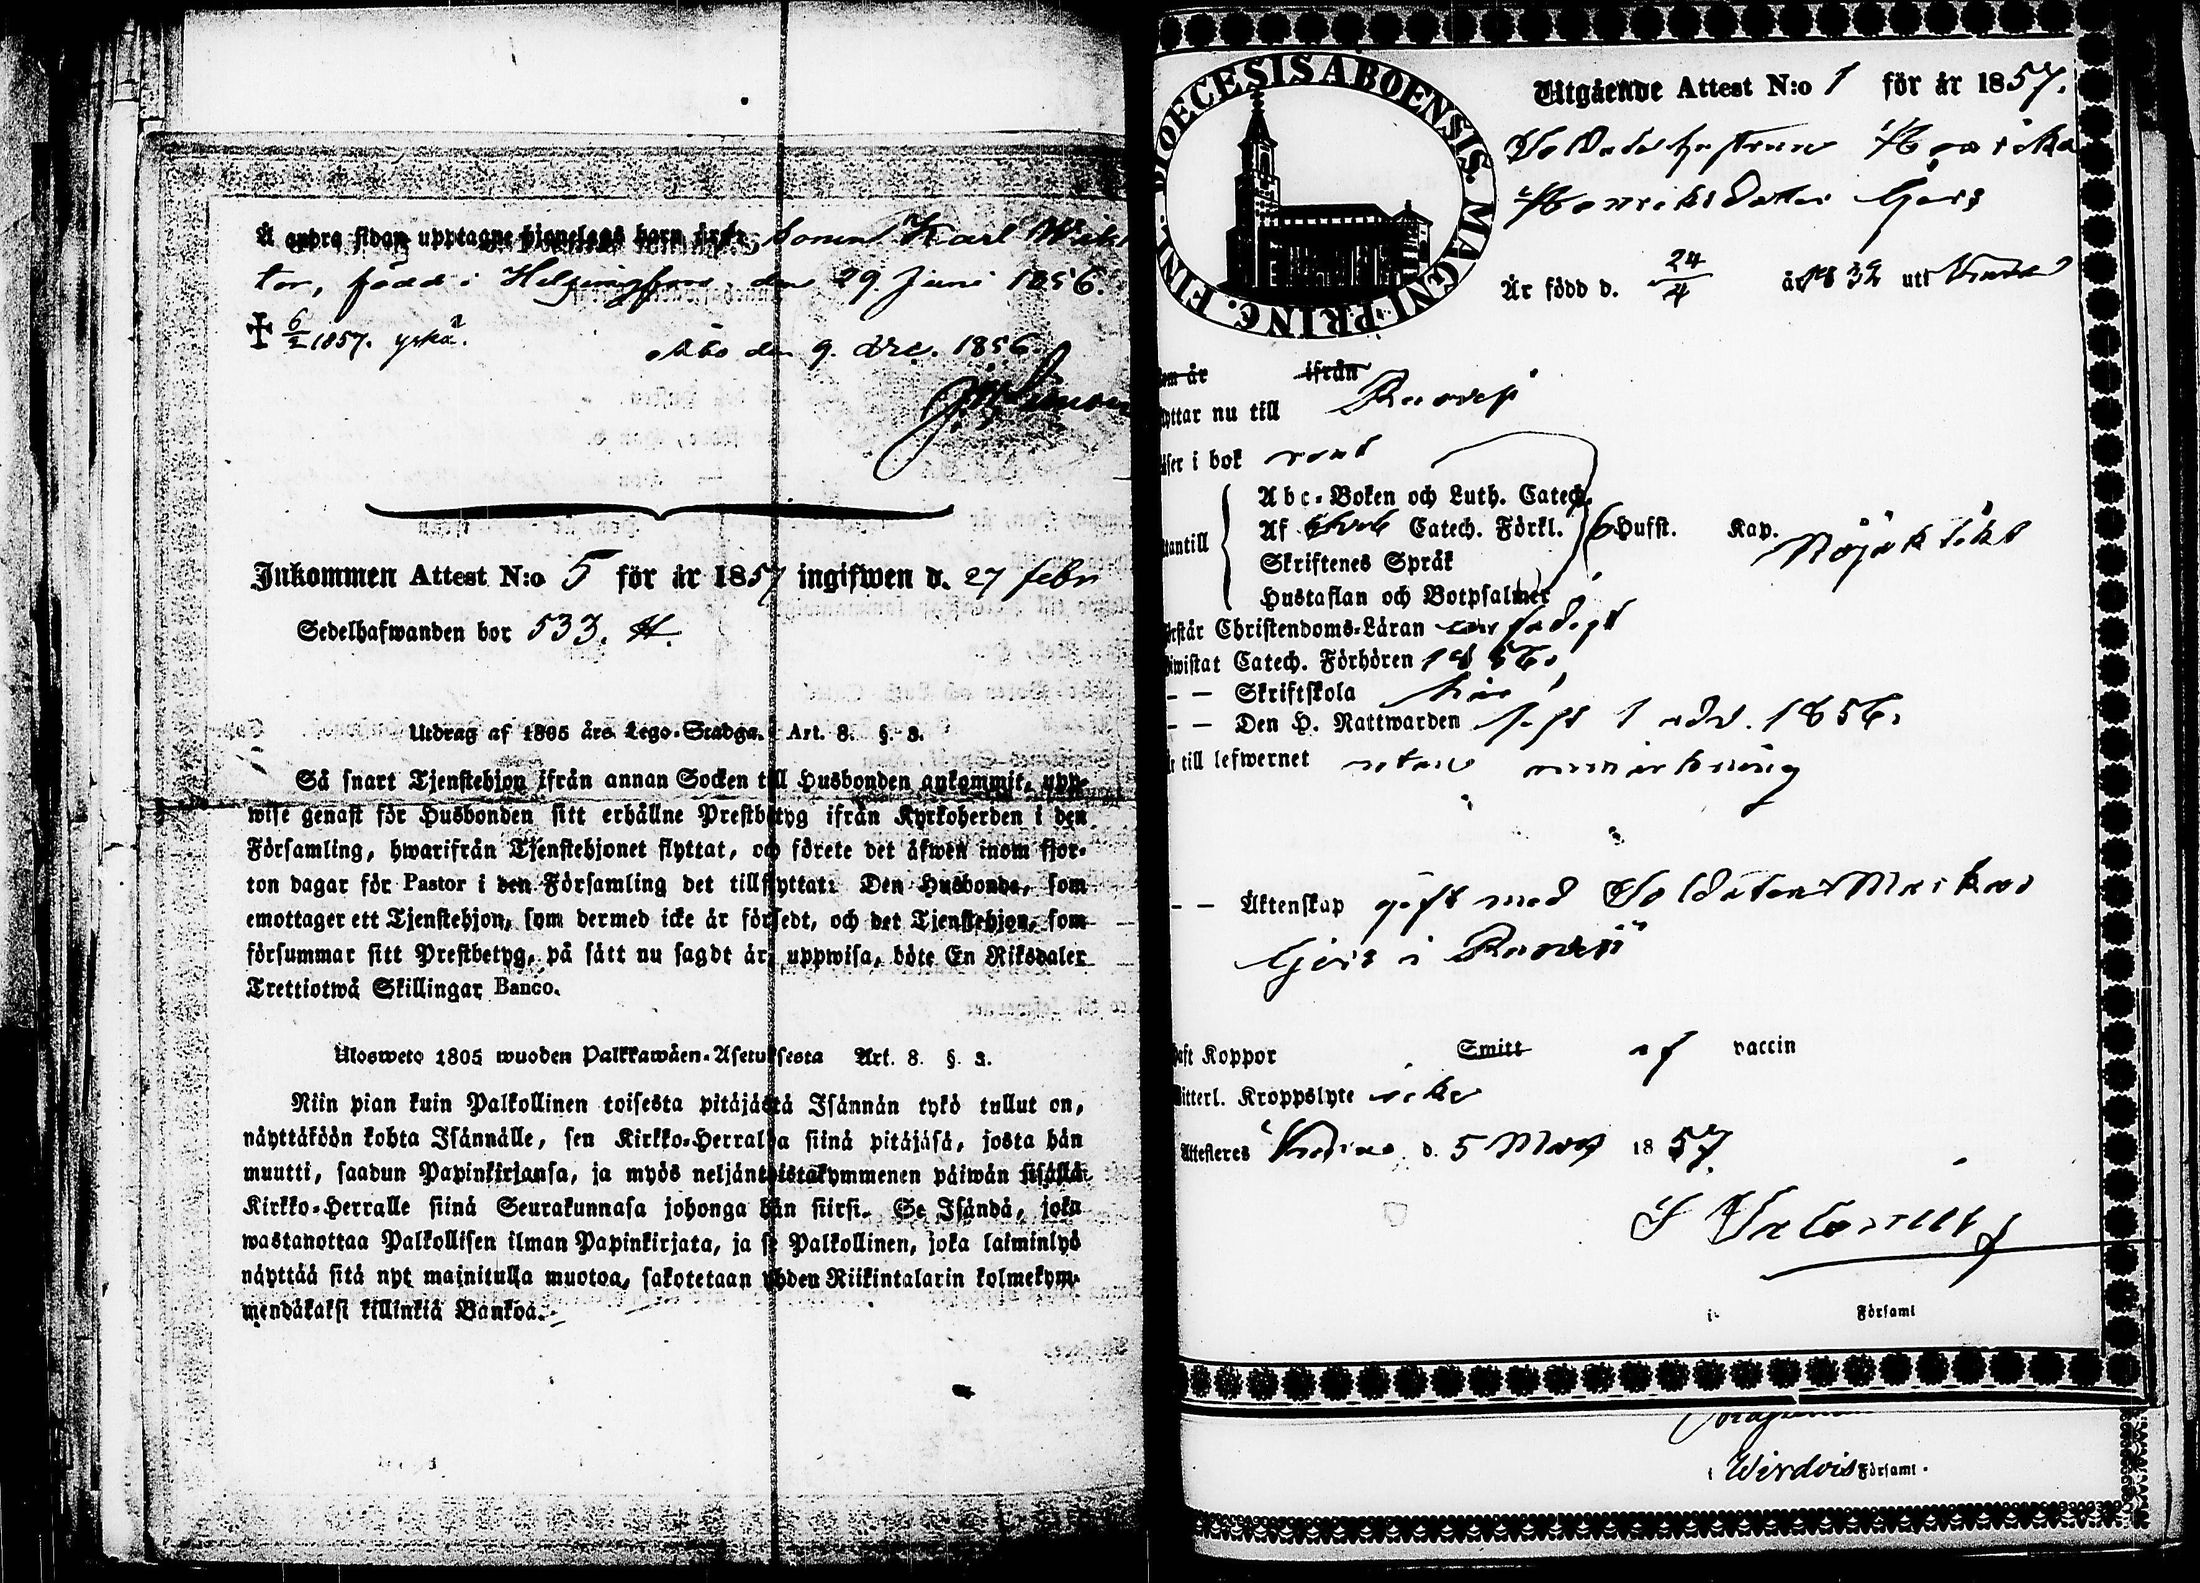 Å andra sidan upptagne hjonelags barn äro: Sonen Karl Wik-
tor, född i Helsingfors den 29 Juni 1856.
✝ 6/2 1857. yskä.
Åbo den 9. Dec. 1856.
Inkommen Attest N:o 5 för år 1857 ingifwen d. 27 febr
Sedelhafwanden bor 533. H.
Utdrag af 1805 års Lego-Stadga. Art. 8. §. 3.
Så snart Tjenstehjon ifrån annan Socken till Husbonden ankommit, upp-
wise genast för Husbonden sitt erhållne Prestbetyg ifrån Kyrkoherden i den
Församling, hwarifrån Tjenstehjonet flyttat, och förete det äfwen inom fjor-
ton dagar för Pastor i den Församling det tillflyttat. Den Husbonde, som
emottager ett Tjenstehjon, som dermed icke är försedt, och det Tjenstehjon, som
försummar sitt Prestbetyg, på sätt nu sagdt är, uppwisa, böte En Riksdaler
Trettiotwå Skillingar Banco.
Ulosweto 1805 wuoden Palkkawäen-Asetuksesta Art. 8. §. 3.
Niin pian kuin Palkollinen toisesta pitäjästä Isännän tykö tullut on,
näyttäköön kohta Isännälle, sen Kirkko-Herralta siinä pitäjäsä, josta hän
muutti, saadun Papinkirjansa, ja myös neljäntoistakymmenen päiwän sisällä
Kirkko-Herralle siinä Seurakunnasa johonga hän siirsi. Se Isändä, joka
wastanottaa Palkollisen ilman Papinkirjata, ja se Palkollinen, joka laiminlyö
näyttää sitä nyt mainitulla muotoa, sakotetaan yhden Riikintalarin kolmekym-
mendäkaksi killinkiä Bankoa.
DIOECESIS ABOENSIS. MAGNI PRINC. FINL.
Utgående Attest N:o 1 för år 1857.
Soldatshustrun
Henriksdotter Gers
Är född d. 24/4 år 1832 uti
om är ifrån
yttar nu till
äser i bok rent
utantill
Abc-Boken och Luth. Catech.
Af Catech. Förkl. Hufst. Kap. Nöjaktikt
Skriftenes Språk
Hustaflan och Botpsalmer
örstår Christendoms-Läran
iwistat Catech. Förhören 1856.
— — Skriftskola här
— — Den H. Nattwarden sist 1 adv. 1856.
r till lefwernet utan anmärkning
— — Äktenskap gift med Soldaten Markus
Gers i
haft Koppor Smitt af vaccin
Witterl. Kroppslyte icke
Attesteres d. 5 Mars 1857.
i Församl
i Wirdois Församl.